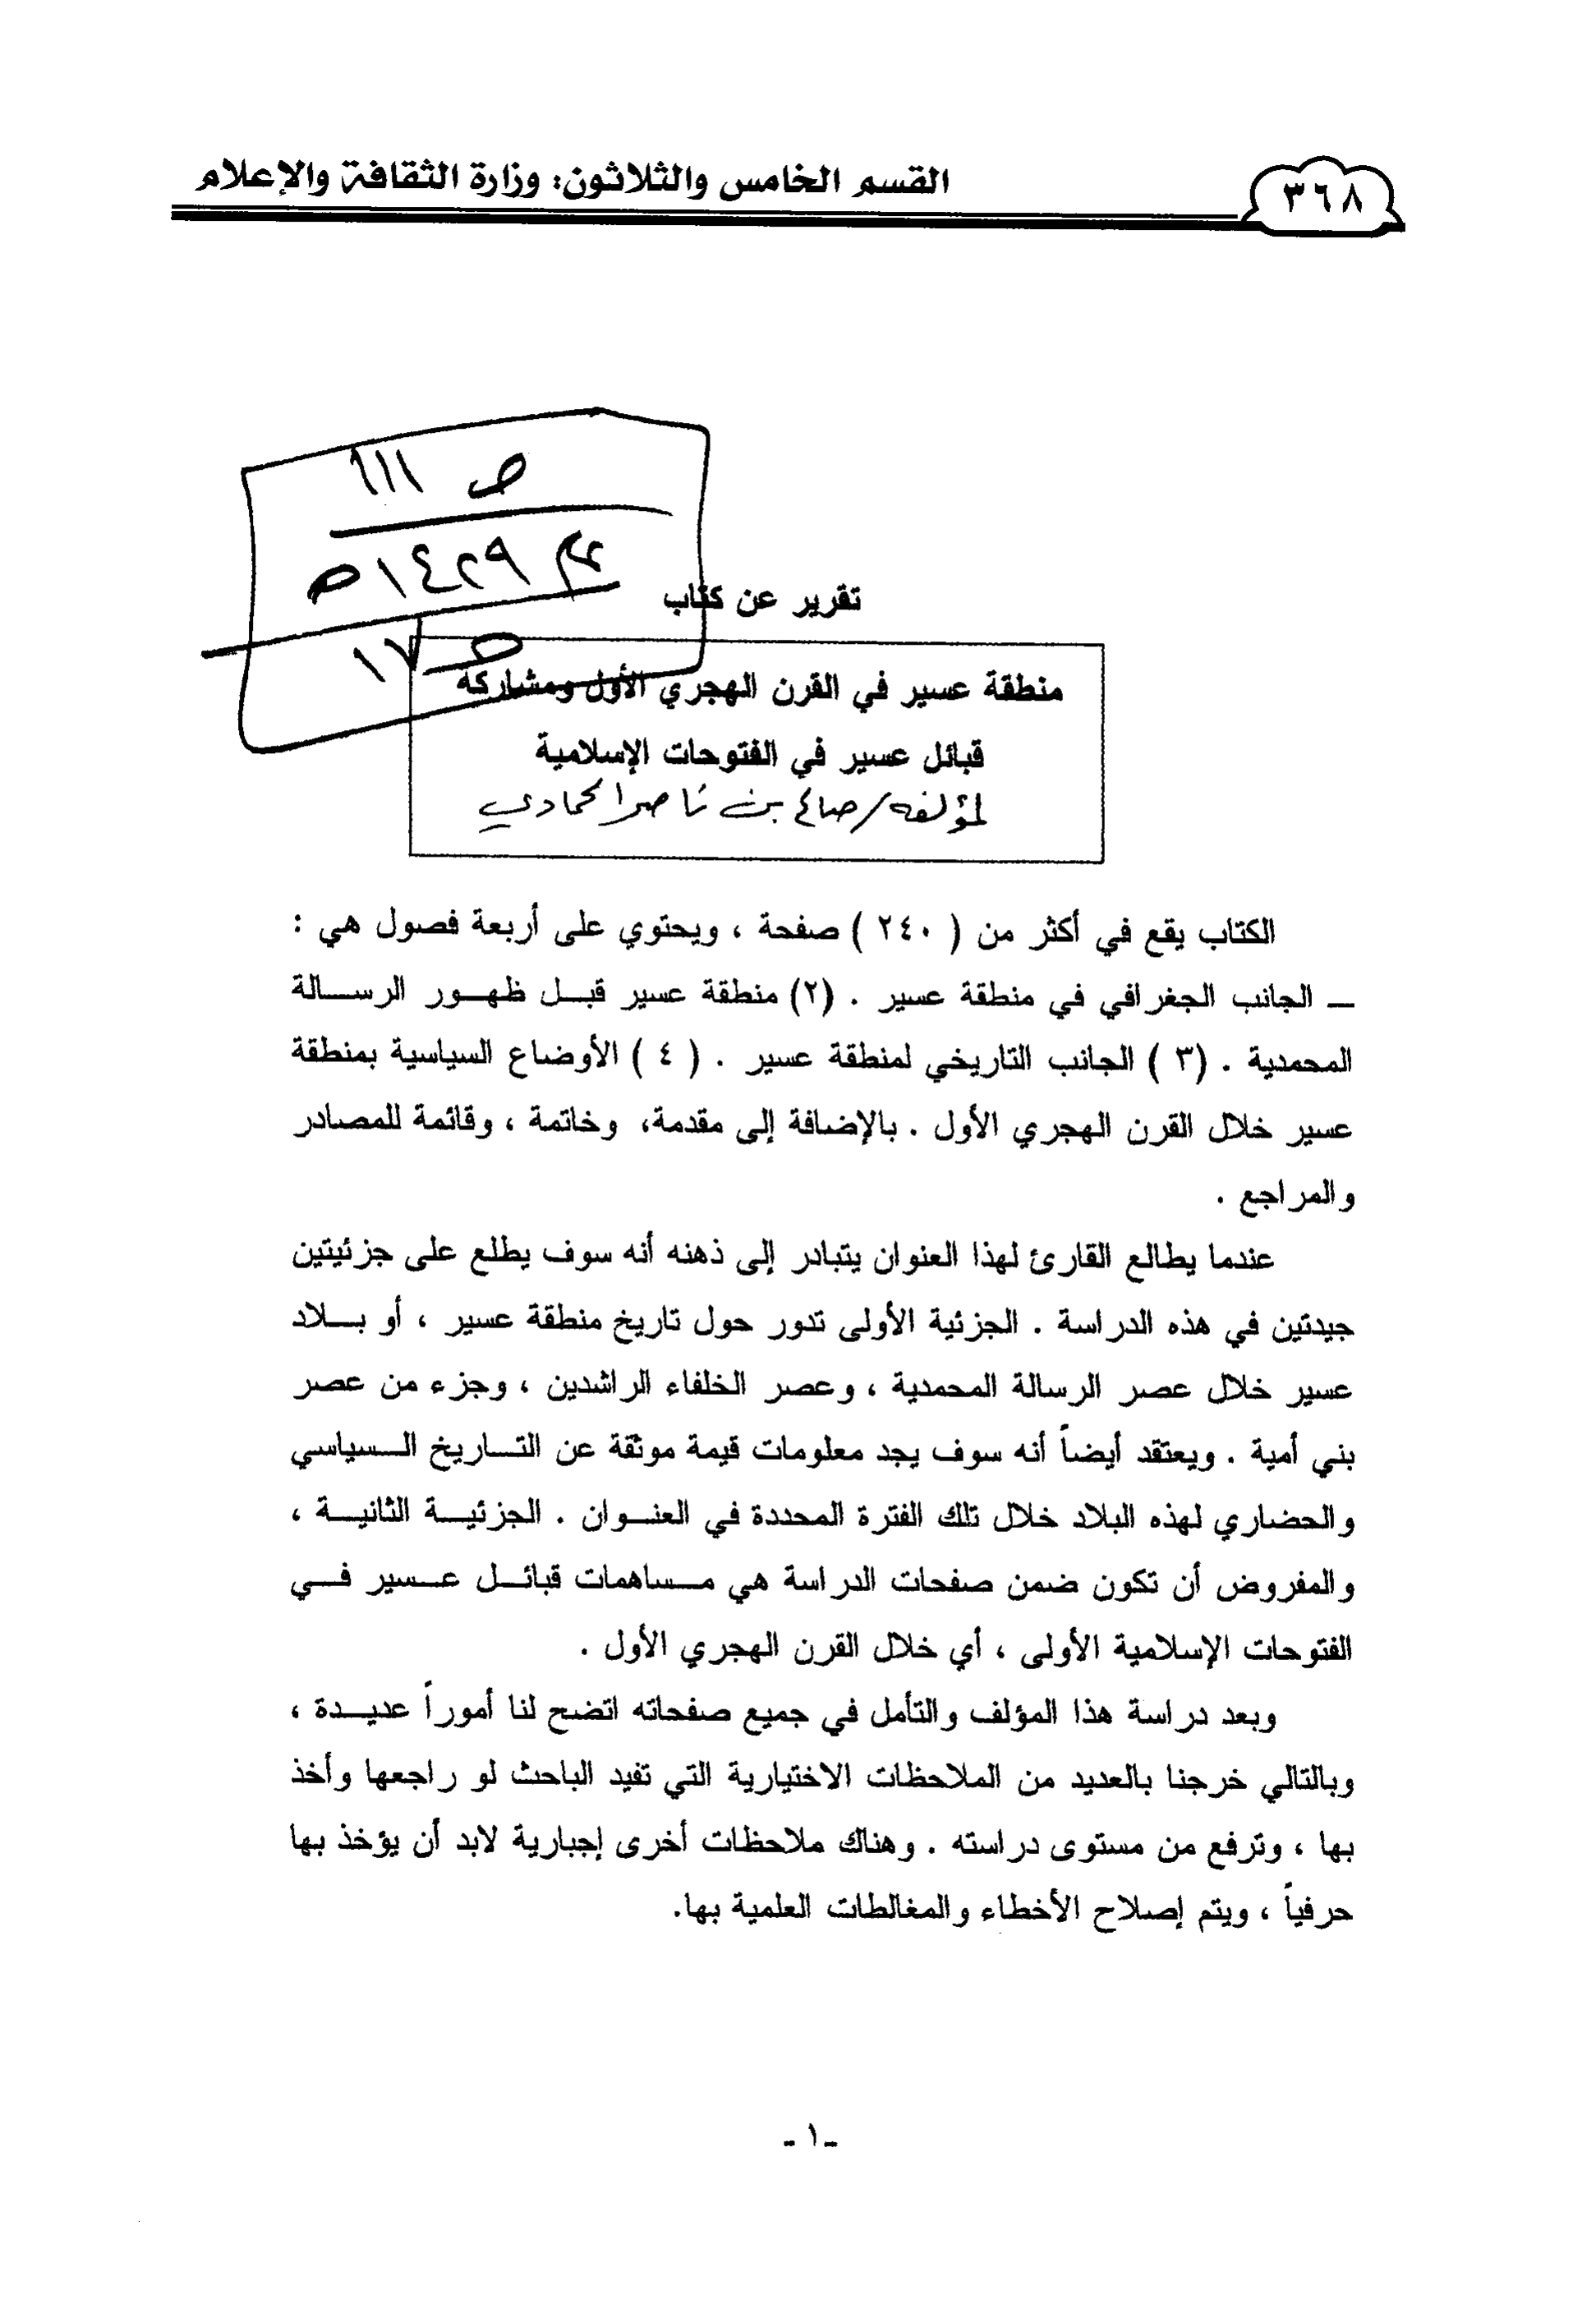 ٣٦٨
القسم الخامس والثلاثون: وزارة الثقافة والإعلام
ص ٦١١
١٤٢٩ هـ
ص ١٧
تقرير عن كتاب
منطقة عسير في القرن الهجري الأول ومشاركة
قبائل عسير في الفتوحات الإسلامية
لمؤلفه/ صالح بن ناصر الحمادي
الكتاب يقع في أكثر من ( ٢٤٠ ) صفحة ، ويحتوي على أربعة فصول هي :
ــ الجانب الجغرافي في منطقة عسير . (٢) منطقة عسير قبـل ظهـور الرسـالة
المحمدية . (٣ ) الجانب التاريخي لمنطقة عسير . ( ٤ ) الأوضاع السياسية بمنطقة
عسير خلال القرن الهجري الأول . بالإضافة إلى مقدمة، وخاتمة ، وقائمة للمصادر
والمراجع .
عندما يطالع القارئ لهذا العنوان يتبادر إلى ذهنه أنه سوف يطلع على جزئيتين
جيدتين في هذه الدراسة . الجزئية الأولى تدور حول تاريخ منطقة عسير ، أو بـلاد
عسير خلال عصر الرسالة المحمدية ، وعصر الخلفاء الراشدين ، وجزء من عصر
بني أمية . ويعتقد أيضاً أنه سوف يجد معلومات قيمة موثقة عن التـاريخ الـسياسي
والحضاري لهذه البلاد خلال تلك الفترة المحددة في العنـوان . الجزئيـة الثانيـة ،
والمفروض أن تكون ضمن صفحات الدراسة هي مـساهمات قبائـل عـسير فـي
الفتوحات الإسلامية الأولى ، أي خلال القرن الهجري الأول .
وبعد دراسة هذا المؤلف والتأمل في جميع صفحاته اتضح لنا أموراً عديـدة ،
وبالتالي خرجنا بالعديد من الملاحظات الاختيارية التي تفيد الباحث لو راجعها وأخذ
بها ، وترفع من مستوى دراسته . وهناك ملاحظات أخرى إجبارية لابد أن يؤخذ بها
حرفياً ، ويتم إصلاح الأخطاء والمغالطات العلمية بها.
- ١ -